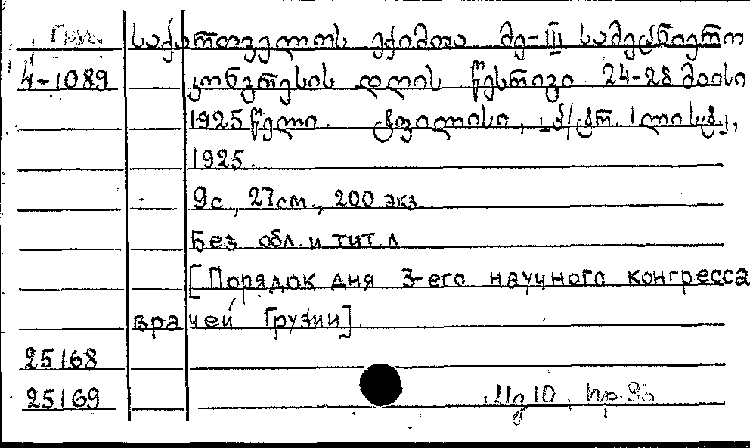 Груз. საქართველოს ექიმთა მე-III სამეცნიერო
4-1089 კონგრესის დღის წესრიგი 24-28 მაისი
1925 წელი. ტფილისი,
1925.
9с., 27см., 200 экз
Без обл. и тит. л
[Порядок дня 3-его научного конгресса
врачей Грузии]
25168
25169